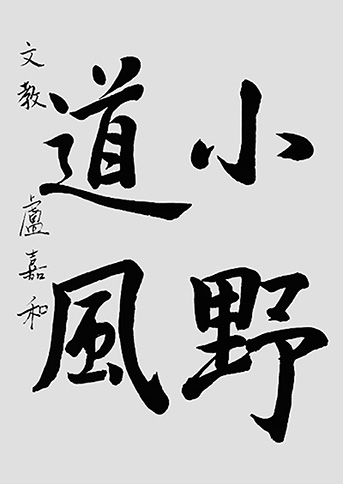 小野
道風
文教 盧嘉和